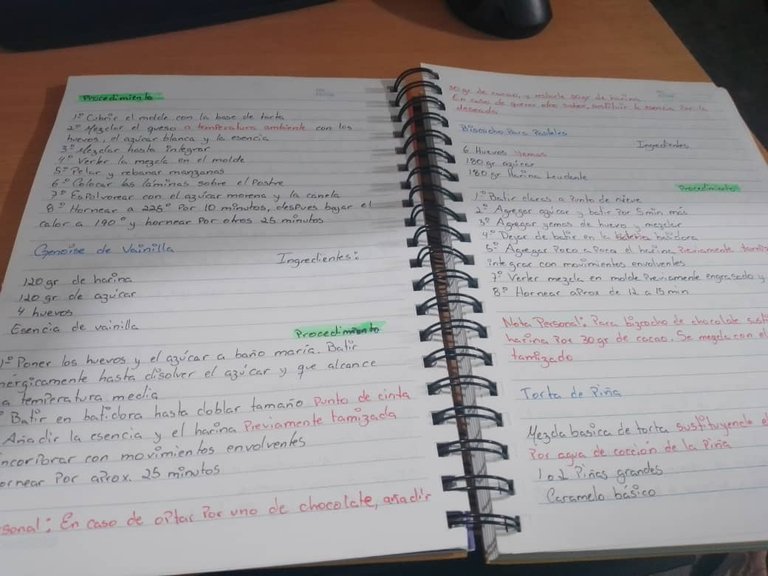 Procedimiento
1º Cubrir el molde con la base de torta
2º Mezclar el queso a temperatura ambiente con los
huevos, el azúcar blanca y la esencia
3º Mezclar hasta integrar
4º Verter la mezcla en el molde
5º Pelar y rebanar manzanas
6º Colocar las láminas sobre el Postre
7º Espolvorear con el azúcar morena y la canela
8º Hornear a 225º Por 10 minutos, después bajar el
calor a 190º y hornear Por otros 25 minutos
Genoise de Vainilla
Ingredientes:
120 gr de harina
120 gr de azúcar
4 huevos
Esencia de vainilla
Procedimiento
1º Poner los huevos y el azúcar a baño maría. Batir
enérgicamente hasta disolver el azúcar y que alcance
a temperatura media
Batir en batidora hasta doblar tamaño Punto de cinta
Añadir la esencia y el harina Previamente tamizada
incorporar con movimientos envolventes
ornear Por aprox. 25 minutos
sonal: En caso de optar Por uno de chocolate, añadir
30 gr de cacao, y restarle 30 gr de harina
En caso de querer otro sabor, sustituir la esencia Por la
deseada
Biscocho Para Pasteles
Ingredientes
6 Huevos
180 gr azúcar
180 gr Harina Leudante
Procedimiento
1º Batir claras a Punto de nieve
2º Agregar azúcar y batir Por 5 min más
3º Agregar yemas de huevo y mezclar
4º Dejar de batir en la batidora
5º Agregar Poco a Poco el harina Previamente tamiz
integrar con movimientos envolventes
7º Verter mezcla en molde Previamente engrasado y
8º Hornear aprox de 12 a 15 min
Nota Personal: Para bizcocho de chocolate susti
harina Por 30 gr de cacao. Se mezcla con el
tamizado
Torta de Piña
Mezcla basica de torta sustituyendo el
Por agua de cocción de la Piña
1 o 2 Piñas grandes
Caramelo básico